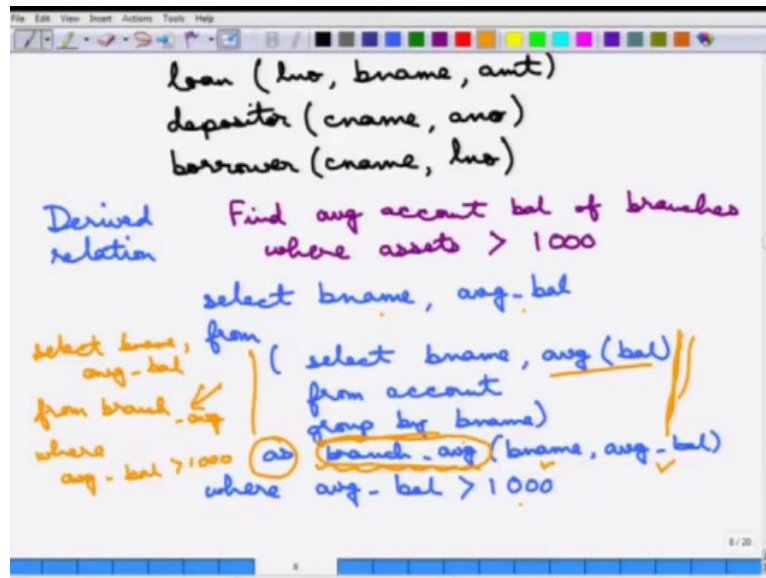 File Edit View Insert Actions Tools Help
loan (lno, bname, amt)
depositor (cname, ano)
borrower (cname, lno)
Derived relation
Find avg account bal of branches
where assets > 1000
select bname, avg-bal
from
( select bname, avg (bal)
from account
group by bname)
as branch-avg (bname, avg-bal)
where avg-bal > 1000
select bname,
avg-bal
from branch-avg
where
avg-bal > 1000
8 / 20